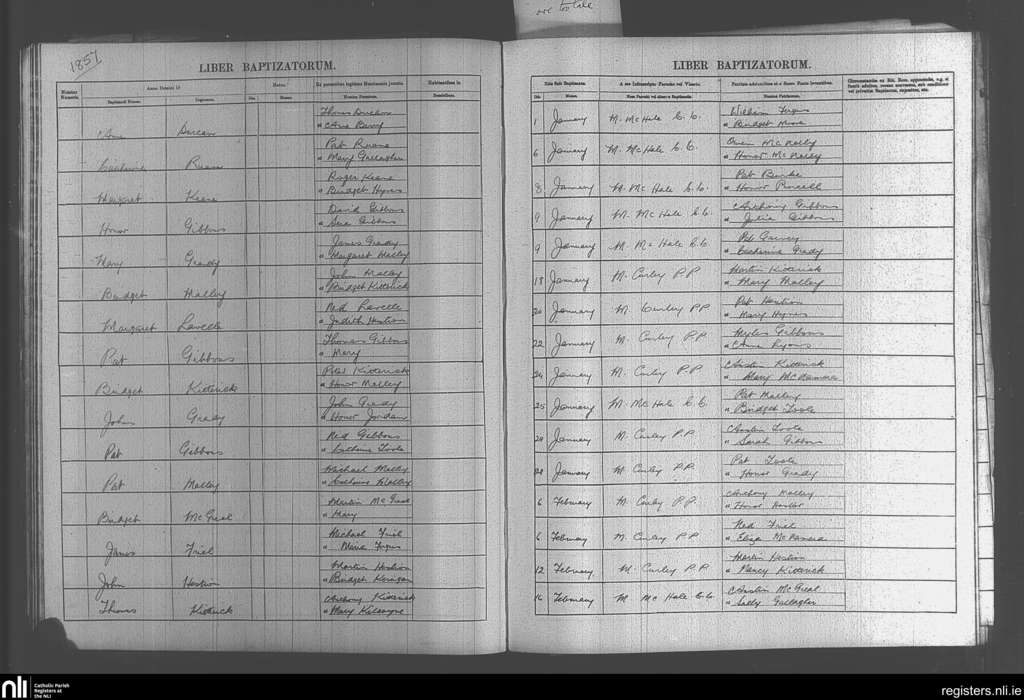 are to tell
1857
LIBER BAPTIZATORUM.
Numerus Currens.
Anno Domini 18
Natus
Ex parentibus legitimo Matrimonio junctis.
Habitantibus in
Baptizati Nomen.
Cognomen.
Die.
Mense.
Nomina Parentum.
Domicilium.
Ann Duncan Thomas Duncan
" Ann Barry
Catherine Ruane Pat Ruane
" Mary Gallagher
Margaret Keane Roger Keane
" Bridget Hynes
Honor Gibbons David Gibbons
" Gibbons
Mary Grady James Grady
" Margaret Malley
Bridget Malley John Malley
" Bridget Kitterick
Margaret Lavelle Ned Lavelle
" Judith Hestion
Pat Gibbons Thomas Gibbons
" Mary
Bridget Kitterick Peter Kitterick
" Honor Malley
John Grady John Grady
" Honor Jordan
Pat Gibbons Ned Gibbons
" Catherine Toole
Pat Malley Michael Malley
" Catherine Malley
Bridget McGreal Martin McGreal
" Mary
James Friel Michael Friel
" Maria Fergus
John Hestion Martin Hestion
" Bridget Kerigan
Thomas Kitterick Anthony Kitterick
" Mary Kilcoyne
LIBER BAPTIZATORUM.
Die.
Mense.
Nomina Patrinorum.
1 January M. McHale C.C. William Fergus
" Bridget
6 January M. McHale C.C. Owen McNally
" Honor McNally
8 January M. McHale C.C. Pat Burke
" Honor Purcell
9 January M. McHale C.C. Anthony Gibbons
" Julia Gibbons
9 January M. McHale C.C. Pat Garvey
" Catherine Grady
18 January M. Curley P.P. Martin Kitterick
" Mary Malley
20 January M. Curley P.P. Pat Hestion
" Mary Hynes
22 January M. Curley P.P. Myles Gibbons
" Anne Lyons
24 January M. Curley P.P. Austin Kitterick
" Mary McNamara
25 January M. McHale C.C. Pat Malley
" Bridget Toole
28 January M. Curley P.P. Austin Toole
" Sarah Gibbons
28 January M. Curley P.P. Pat Toole
" Honor Grady
6 February M. Curley P.P. Anthony Malley
" Honor
6 February M. Curley P.P. Ned Friel
" Eliza McNamara
12 February M. Curley P.P. Martin Hestion
" Nancy Kitterick
16 February M. McHale C.C. Austin McGreal
" Sally Gallagher
nli Catholic Parish
Registers at
the NLI
registers.nli.ie